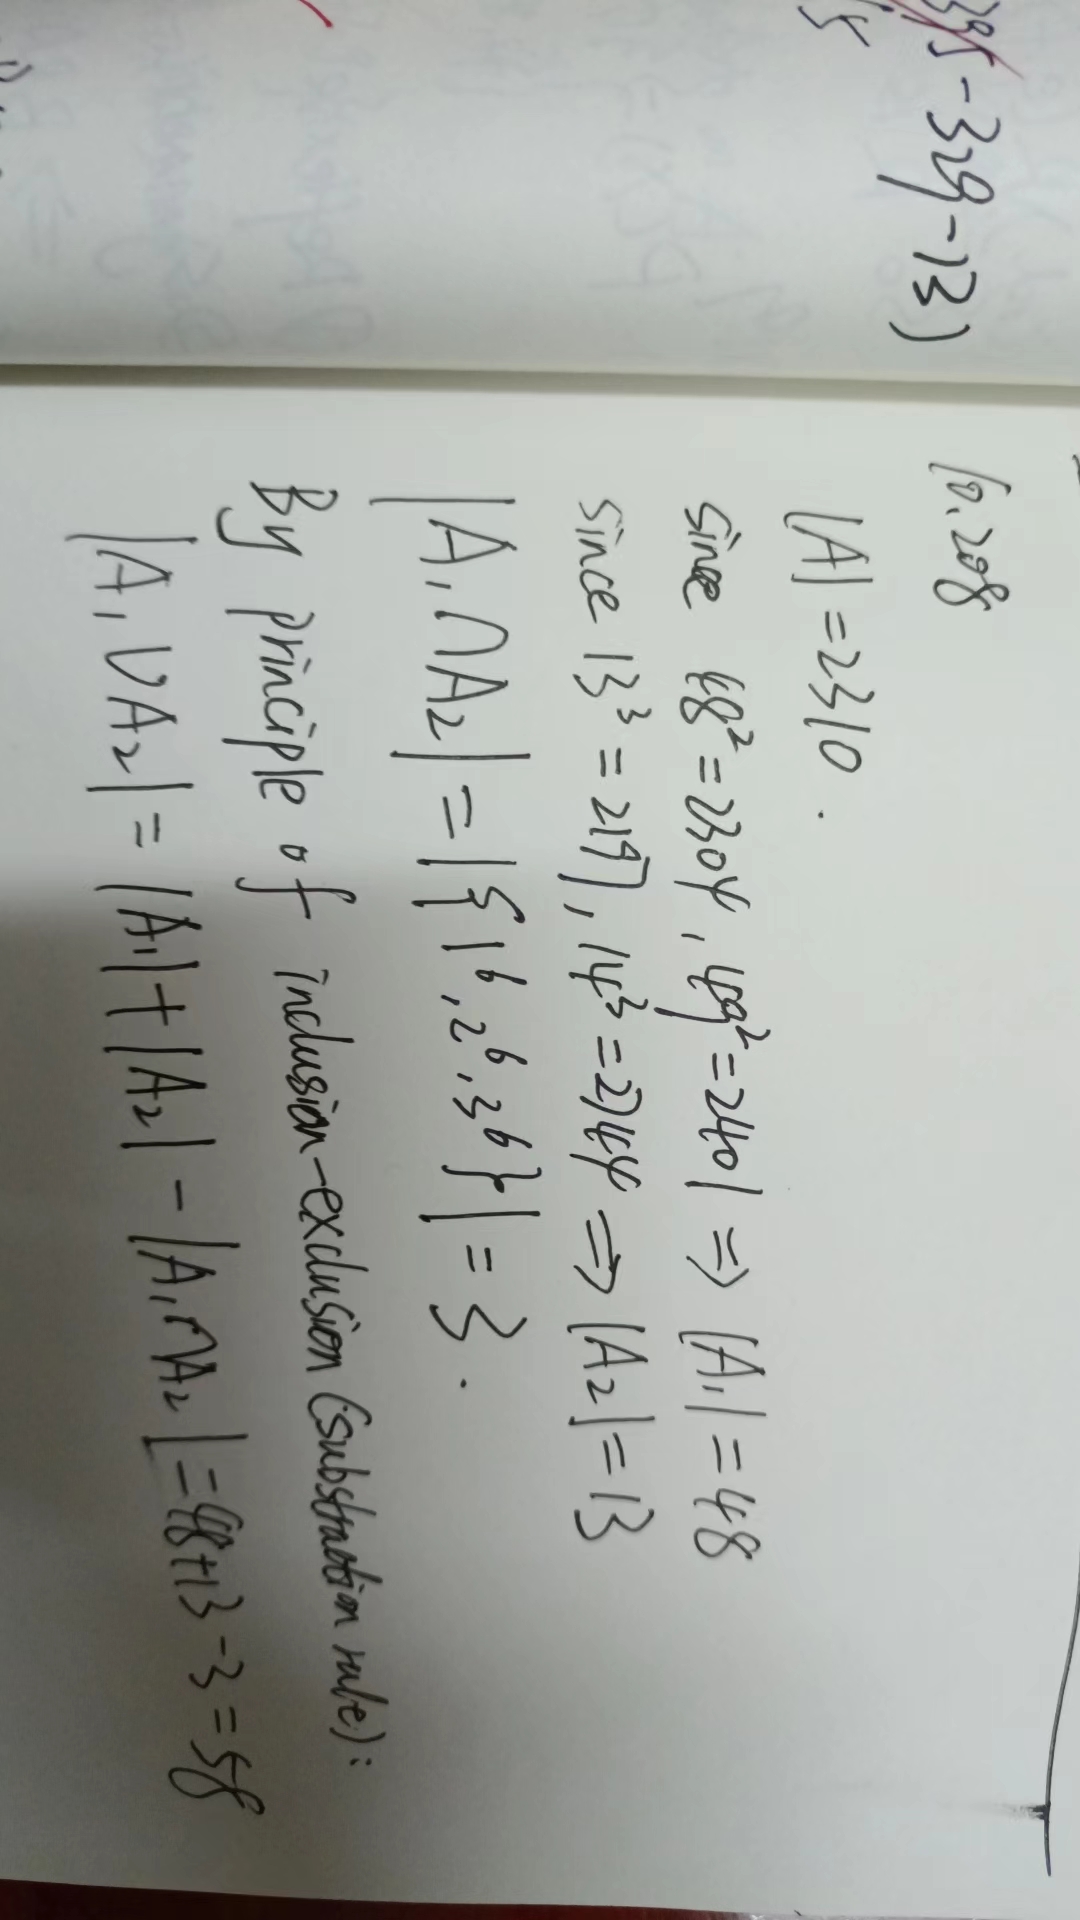 -329-13)
10.208
|A|=2310.
since 48²=2304, 49²=2401 ⇒ |A₁|=48
since 13³=2197, 14³=2744 ⇒ |A₂|=13
|A₁∩A₂|=|{1⁶,2⁶,3⁶}|=3.
By principle of inclusion-exclusion (substraction rule):
|A₁∪A₂|=|A₁|+|A₂|-|A₁∩A₂|=48+13-3=58